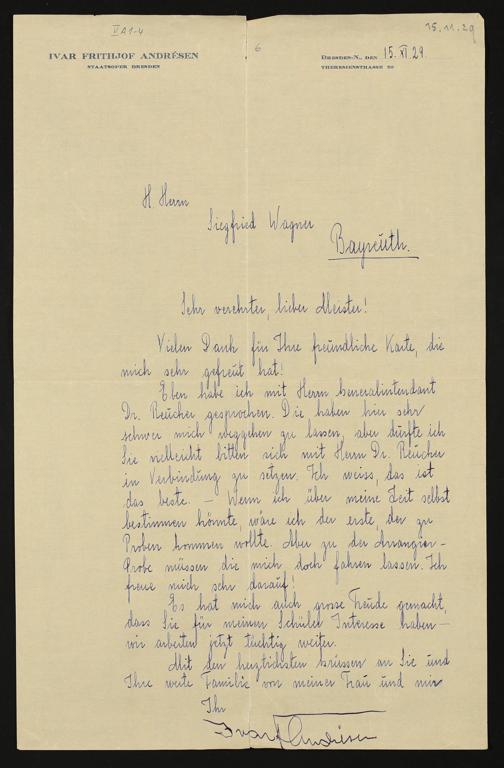 VA1-4
15.11.29
6
IVAR FRITHJOF ANDRÉSEN
STAATSOPER DRESDEN
DRESDEN-N., DEN 15. XI 29.
THERESIENSTRASSE
H. Herrn
Siegfried Wagner
Bayreuth.
Sehr verehrter, lieber Meister!
Vielen Dank für Ihre freundliche Karte, die
mich sehr gefreut hat!
Eben habe ich mit Herrn Generalintendant
Dr. Reucker gesprochen. Die haben hier sehr
schwer mich weggehen zu lassen, aber dürfte ich
Sie vielleicht bitten sich mit Herrn Dr. Reucker
in Verbindung zu setzen. Ich weiss, das ist
das beste. – Wenn ich über meine Zeit selbst
bestimmen könnte, wäre ich der erste, der zu
Proben kommen wollte. Aber zu der Arrangier-
Probe müssen die mich doch fahren lassen. Ich
freue mich sehr darauf!
Es hat mich auch grosse Freude gemacht,
dass Sie für meinen Schüler Interesse haben –
wir arbeiten jetzt tüchtig weiter.
Mit den herzlichsten Grüssen an Sie und
Ihre werte Familie von meiner Frau und mir
Ihr
Ivar F Andrésen